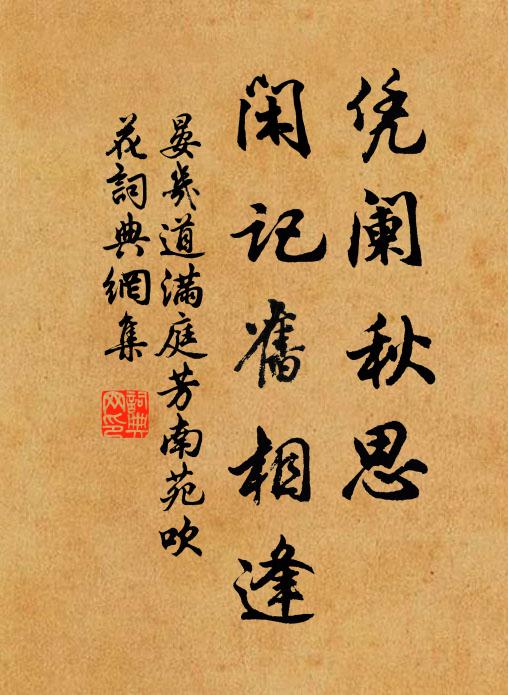 凭阑秋思
闲记舊相逢
晏幾道满庭芳南苑吹
花詞典網集
詞典
网印